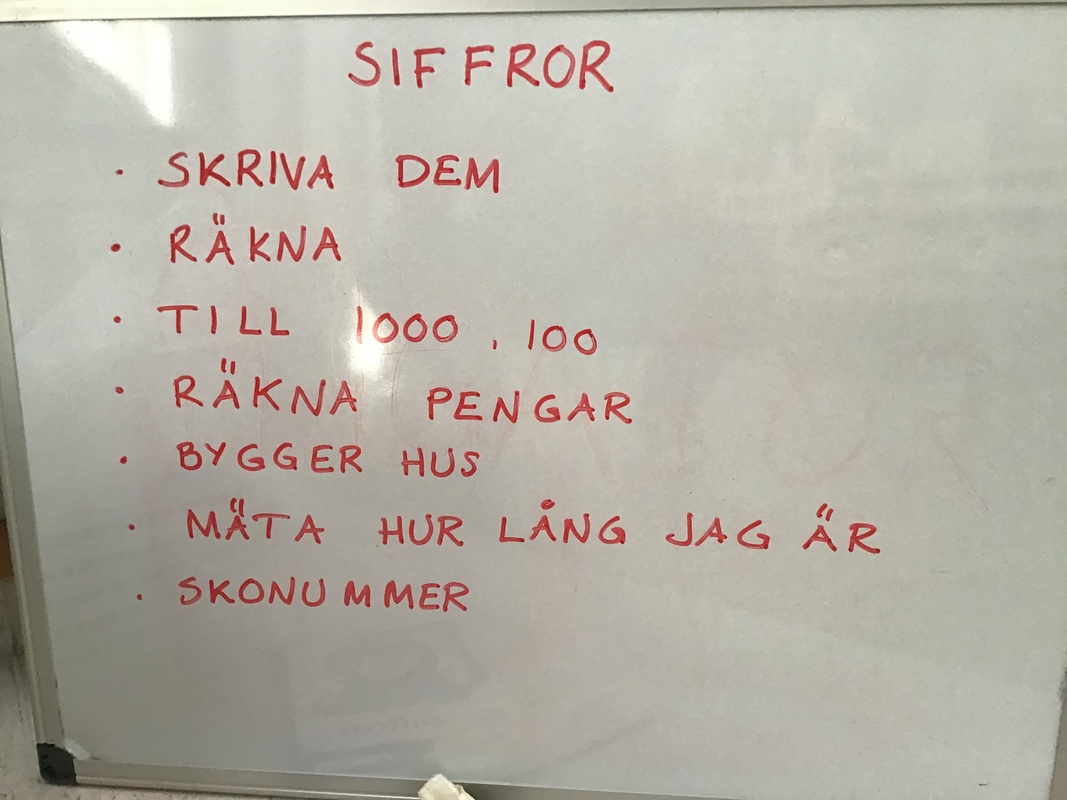 SIFFROR
· SKRIVA DEM
· RÄKNA
· TILL 1000, 100
· RÄKNA PENGAR
· BYGGER HUS
· MÄTA HUR LÅNG JAG ÄR
· SKONUMMER